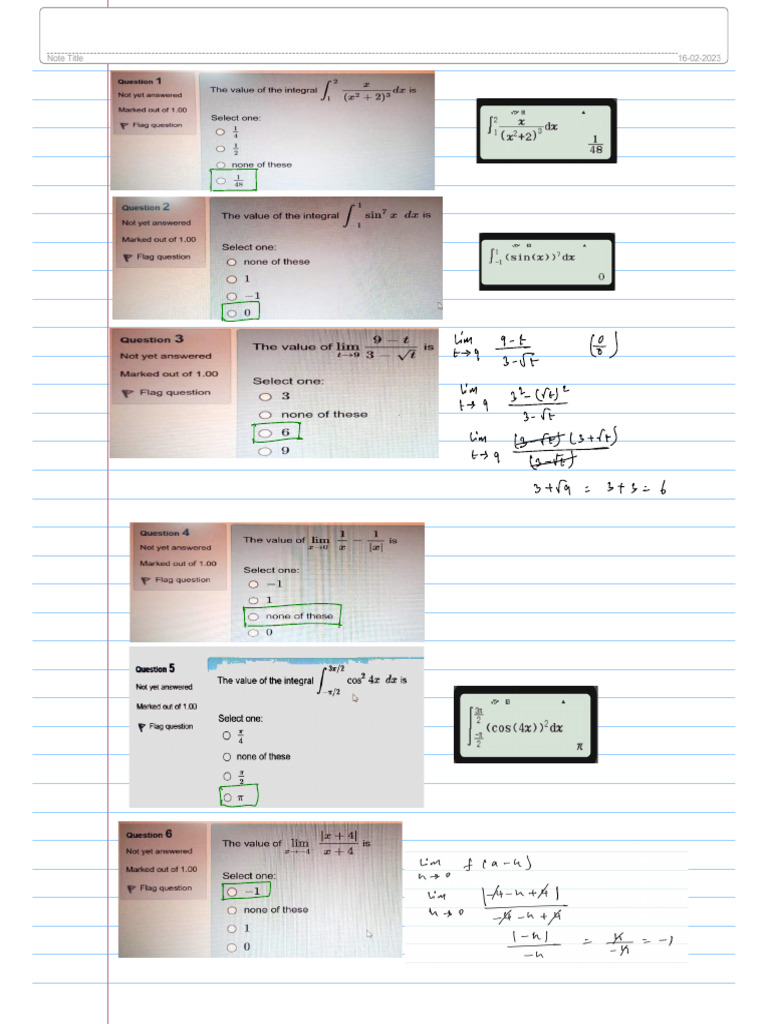 Note Title
16-02-2023
Question 1
Not yet answered
Marked out of 1.00
Flag question
The value of the integral ∫₁² x/(x² + 2)³ dx is
Select one:
1/4
1/2
none of these
1/48
∫₁² x/(x²+2)³ dx
1/48
Question 2
Not yet answered
Marked out of 1.00
Flag question
The value of the integral ∫₁¹ sin⁷ x dx is
Select one:
none of these
1
−1
0
∫₋₁¹ (sin(x))⁷dx
0
Question 3
Not yet answered
Marked out of 1.00
Flag question
The value of lim t→9 (9 − t)/(3 − √t) is
Select one:
3
none of these
6
9
lim t→9 (9-t)/(3-√t) (0/0)
lim t→9 (3²-(√t)²)/(3-√t)
lim t→9 (3-√t)(3+√t)/(3-√t)
3+√9 = 3+3 = 6
Question 4
Not yet answered
Marked out of 1.00
Flag question
The value of lim 1/x − 1/|x| is
Select one:
−1
1
none of these
0
Question 5
Not yet answered
Marked out of 1.00
Flag question
The value of the integral ∫₋π/2^3π/2 cos² 4x dx is
Select one:
π/4
none of these
π/2
π
∫ -π/2 3π/2 (cos(4x))²dx
π
Question 6
Not yet answered
Marked out of 1.00
Flag question
The value of lim |x + 4|/(x + 4) is
Select one:
−1
none of these
1
0
lim h→0 f(a-h)
lim h→0 |-4-h+4|/(-4-h+4)
|-h|/-h = h/-h = -1